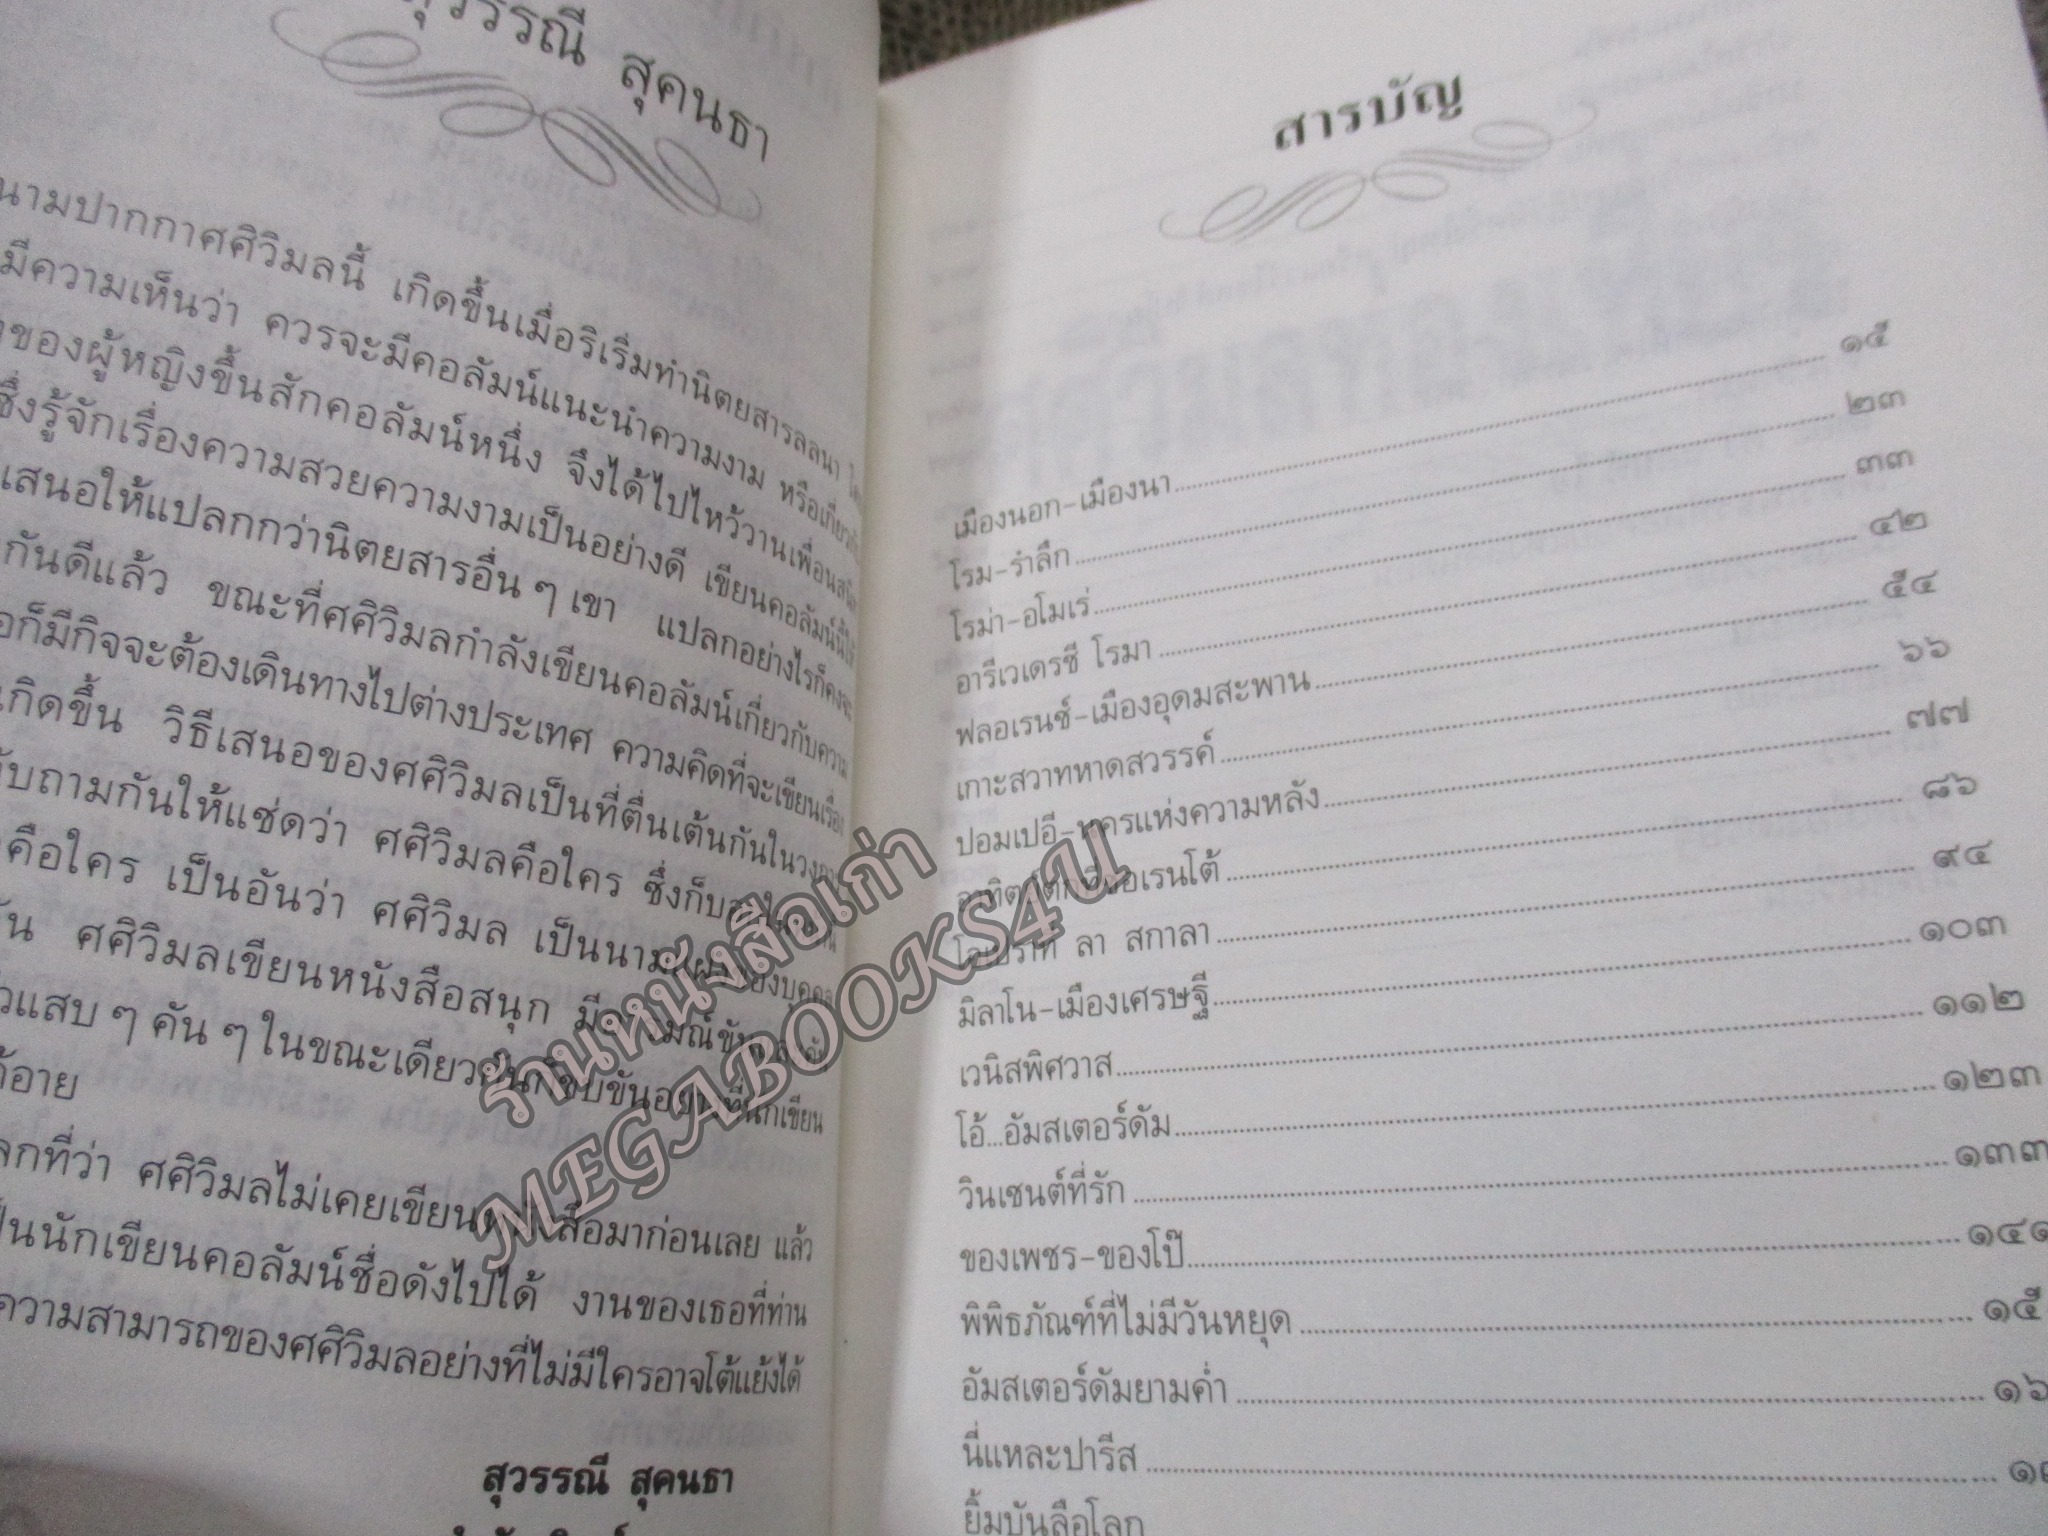 สุวรรณี สุคนธา
นามปากกาศศิวิมลนี้ เกิดขึ้นเมื่อริเริ่มทำนิตยสารลลนา
มีความเห็นว่า ควรจะมีคอลัมน์แนะนำความงาม หรือเกี่ยวกับ
ของผู้หญิงขึ้นสักคอลัมน์หนึ่ง จึงได้ไปไหว้วานเพื่อนสนิท
ซึ่งรู้จักเรื่องความสวยความงามเป็นอย่างดี เขียนคอลัมน์นี้ให้
เสนอให้แปลกกว่านิตยสารอื่น ๆ เขา แปลกอย่างไรก็คงจะ
กันดีแล้ว ขณะที่ศศิวิมลกำลังเขียนคอลัมน์เกี่ยวกับความ
ก็มีกิจจะต้องเดินทางไปต่างประเทศ ความคิดที่จะเขียนเรื่อง
เกิดขึ้น วิธีเสนอของศศิวิมลเป็นที่ตื่นเต้นกันในวงการ
ถามกันให้แซ่ดว่า ศศิวิมลคือใคร ซึ่งก็
คือใคร เป็นอันว่า ศศิวิมล เป็นนาม ของบุคคล
ศศิวิมลเขียนหนังสือสนุก มีอารมณ์ขัน
แสบ ๆ คัน ๆ ในขณะเดียวกันก็ ขันอย่างที่นักเขียน
อาย
ที่ว่า ศศิวิมลไม่เคยเขียนหนังสือมาก่อนเลย แล้ว
เป็นนักเขียนคอลัมน์ชื่อดังไปได้ งานของเธอที่ท่าน
ความสามารถของศศิวิมลอย่างที่ไม่มีใครอาจโต้แย้งได้
สุวรรณี สุคนธา
สารบัญ
เมืองนอก-เมืองนา ๑๕
โรม-รำลึก ๒๓
โรม่า-อโมเร่ ๓๓
อารีเวเดรชี โรมา ๔๒
ฟลอเรนซ์-เมืองอุดมสะพาน ๕๔
เกาะสวาทหาดสวรรค์ ๖๖
ปอมเปอี-นครแห่งความหลัง ๗๗
อาทิตย์ตกที่ซอเรนโต้ ๘๖
โอเปร่าที่ ลา สกาลา ๙๔
มิลาโน-เมืองเศรษฐี ๑๐๓
เวนิสพิศวาส ๑๑๒
โอ้...อัมสเตอร์ดัม ๑๒๓
วินเซนต์ที่รัก ๑๓๓
ของเพชร-ของโป๊ ๑๔๑
พิพิธภัณฑ์ที่ไม่มีวันหยุด ๑๕
อัมสเตอร์ดัมยามค่ำ ๑๖
นี่แหละปารีส ๑
ยิ้มบันลือโลก
ร้านหนังสือเก่า
MEGABOOKS4U